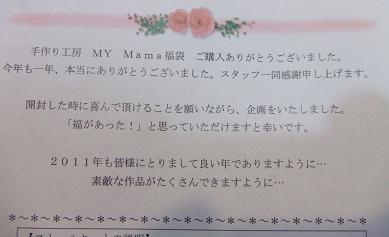 手作り工房　ＭＹ　Ｍａｍａ福袋　ご購入ありがとうございました。
今年も一年、本当にありがとうございました。スタッフ一同感謝申し上げます。
開封した時に喜んで頂けることを願いながら、企画をいたしました。
「福があった！」と思っていただけますと幸いです。
２０１１年も皆様にとりまして良い年でありますように…
素敵な作品がたくさんできますように…
＊～＊～＊～＊～＊～＊～＊～＊～＊～＊～＊～＊～＊～＊～＊～＊～＊～＊